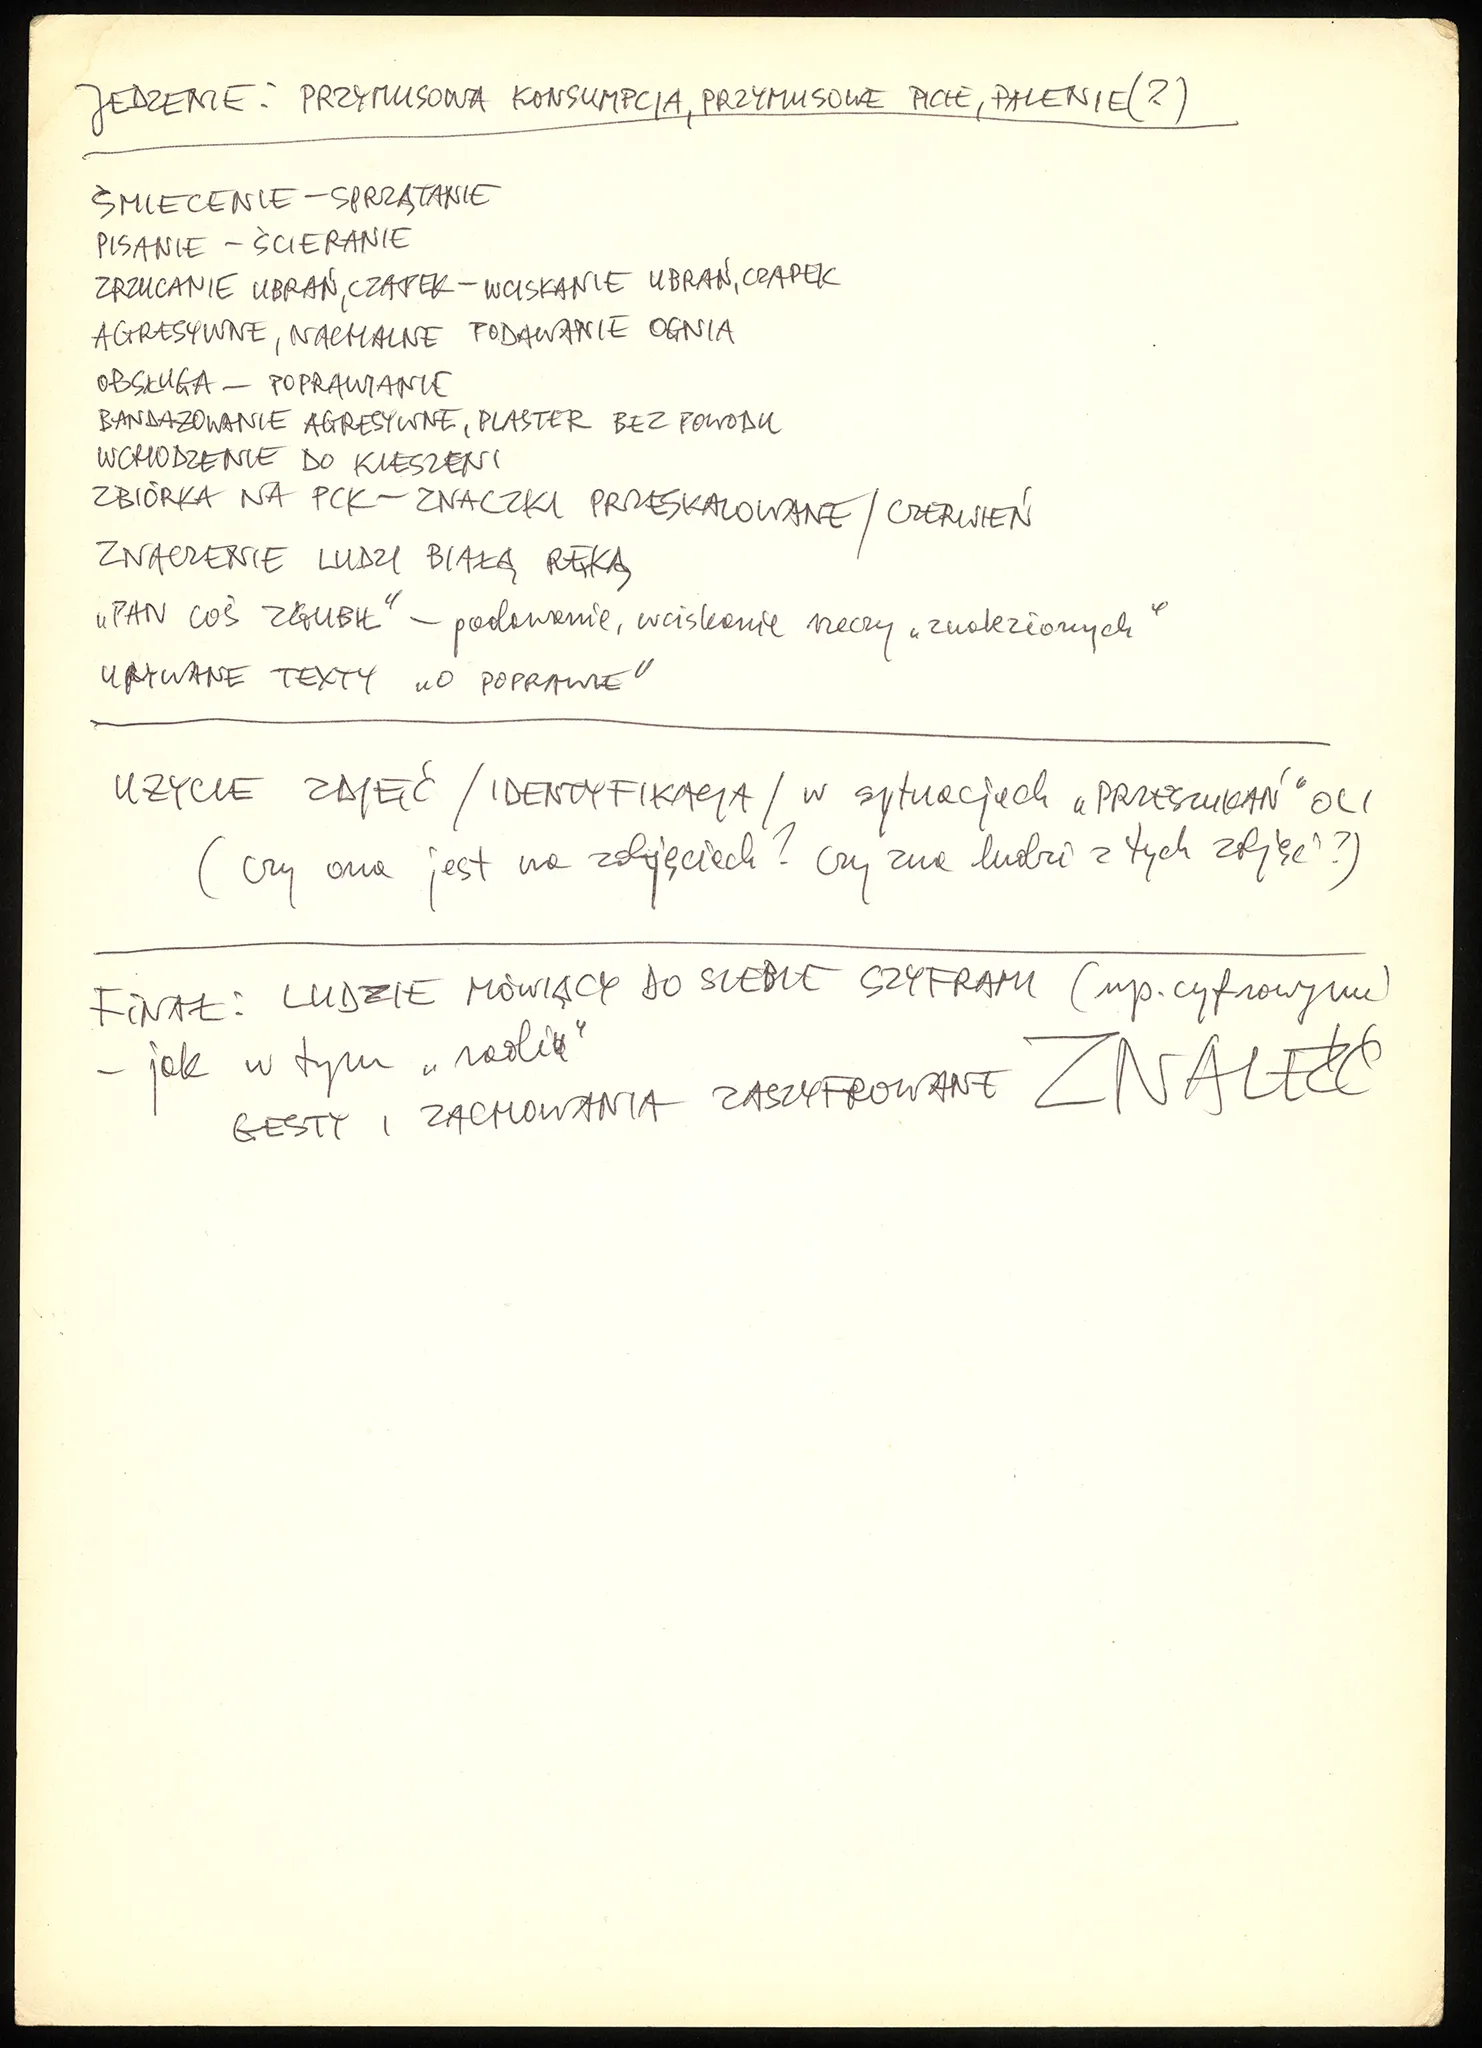 JEDZENIE: PRZYMUSOWA KONSUMPCJA, PRZYMUSOWE PICIE, PALENIE (?)
ŚMIECENIE – SPRZĄTANIE
PISANIE – ŚCIERANIE
ZRZUCANIE UBRAŃ, CZAPEK – WCISKANIE UBRAŃ, CZAPEK
AGRESYWNE, NACHALNE PODAWANIE OGNIA
OBSŁUGA – POPRAWIANIE
BANDAŻOWANIE AGRESYWNE, PLASTER BEZ POWODU
WCHODZENIE DO KIESZENI
ZBIÓRKA NA PCK – ZNACZKI PRZESKALOWANE / CZERWIEŃ
ZNACZENIE LUDZI BIAŁĄ RĘKĄ
„PAN COŚ ZGUBIŁ" – podawanie, wciskanie rzeczy „znalezionych"
URYWANE TEXTY „O POPRAWIE"
UŻYCIE ZDJĘĆ / IDENTYFIKACJA / w sytuacjach „PRZESZUKAŃ" OLI
(czy ona jest na zdjęciach? czy zna ludzi z tych zdjęć?)
FINAŁ: LUDZIE MÓWIĄCY DO SIEBIE SZYFRAMI (np. cyfrowymi)
– jak w tym „radiu"
GESTY I ZACHOWANIA ZASZYFROWANE ZNALEŹĆ